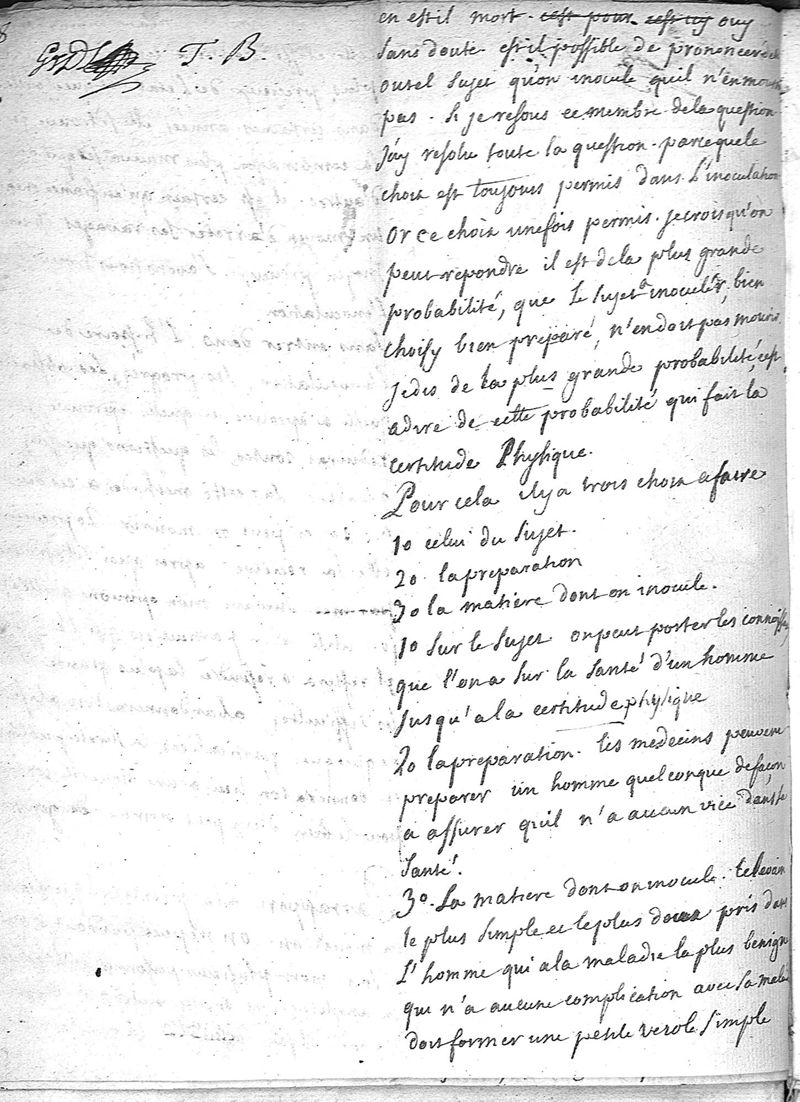 T. B.
en est il mort. c'est pour c'est uy ouy
sans doute. est il possible de prononcer
ou tel sujet qu'on inocule quil n'en mourra
pas. Si je resous ce membre de la question
j'ay resolu toute la question. parceque le
choix est toujours permis dans L'inoculation
Or ce choix une fois permis. je crois qu'on
peut repondre il est de la plus grande
probabilité, que Le sujet a inoculer, bien
choisy bien preparé, n'en doit pas mourir
je dis de la plus grande probabilité, c'est
adire de cette probabilité qui fait la
certitude Physique.
Pour cela il y a trois choix a faire
1o celui du sujet.
2o. la preparation
3o la matière dont on inocule.
1o sur le sujet on peut porter les connoiss
que l'on a sur la santé d'un homme
jusqu'a la certitude physique
2o la preparation. les medecins peuvent
preparer un homme quelconque de façon
a assurer quil n'a aucun vice dans sa
santé.
3o. La matière dont on inocule. le levain
le plus simple et le plus doux pris dans
L'homme qui a la maladie la plus benigne
qui n'a aucune complication avec sa mala
doit former une petite verole simple